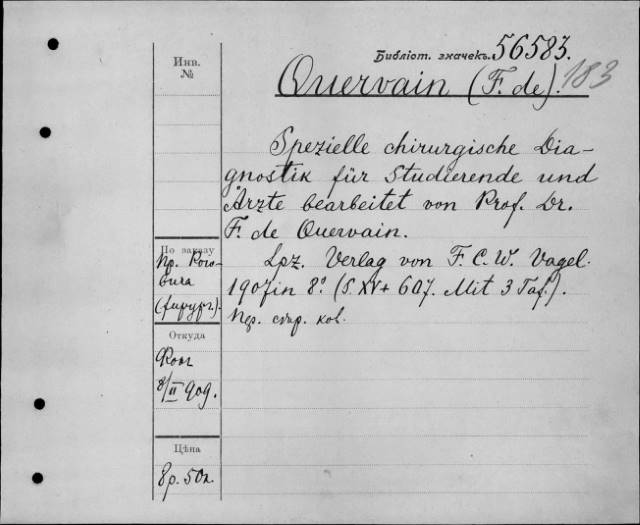 Инв.
№
Библіот. значекъ. 56583.
Quervain (F. de). 183
Spezielle chirurgische Dia-
gnostik für Studierende und
Ärzte bearbeitet von Prof. Dr.
F. de Quervain.
Lpz. Verlag von F. C. W. Vogel.
1907 in 8° (S. XV + 607. Mit 3 Taf.).
По заказу
пр.
(хирург.).
Откуда
8/II 909.
Цѣна
8р. 50к.